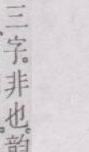 三字。非也。韵